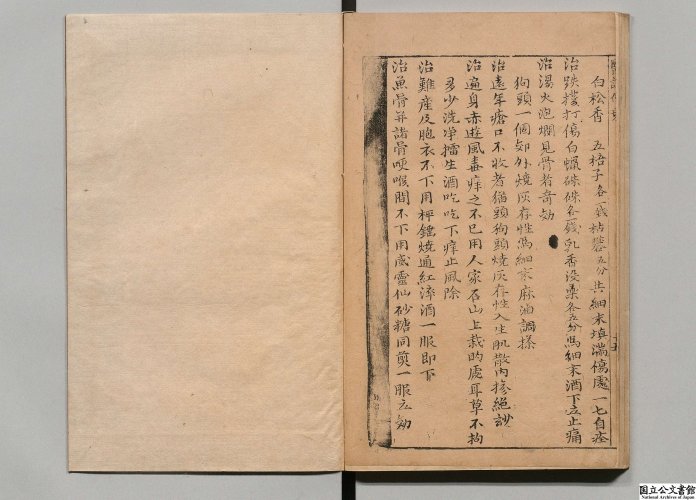 白松香　五棓子各一錢枯礬五分共細末填滿傷處一七自痊
治跌撲打傷白蠟硃砂各一錢乳香没藥各五分為細末酒下立止痛
治湯火泡爛見骨者奇効
狗頭一個郊外燒灰存性為細末麻油調搽
治遠年瘡口不收者猫頭狗頭燒灰存性入生肌散內摻絕妙
治遍身赤遊風毒痒之不已用人家石山上栽的處耳草不拘
多少洗淨擂生酒吃吃下痒止風除
治難產及胞衣不下用秤錘燒通紅淬酒一服即下
治魚骨并諸骨哽喉間不下用威靈仙砂糖同煎一服立効
国立公文書館
National Archives of Japan